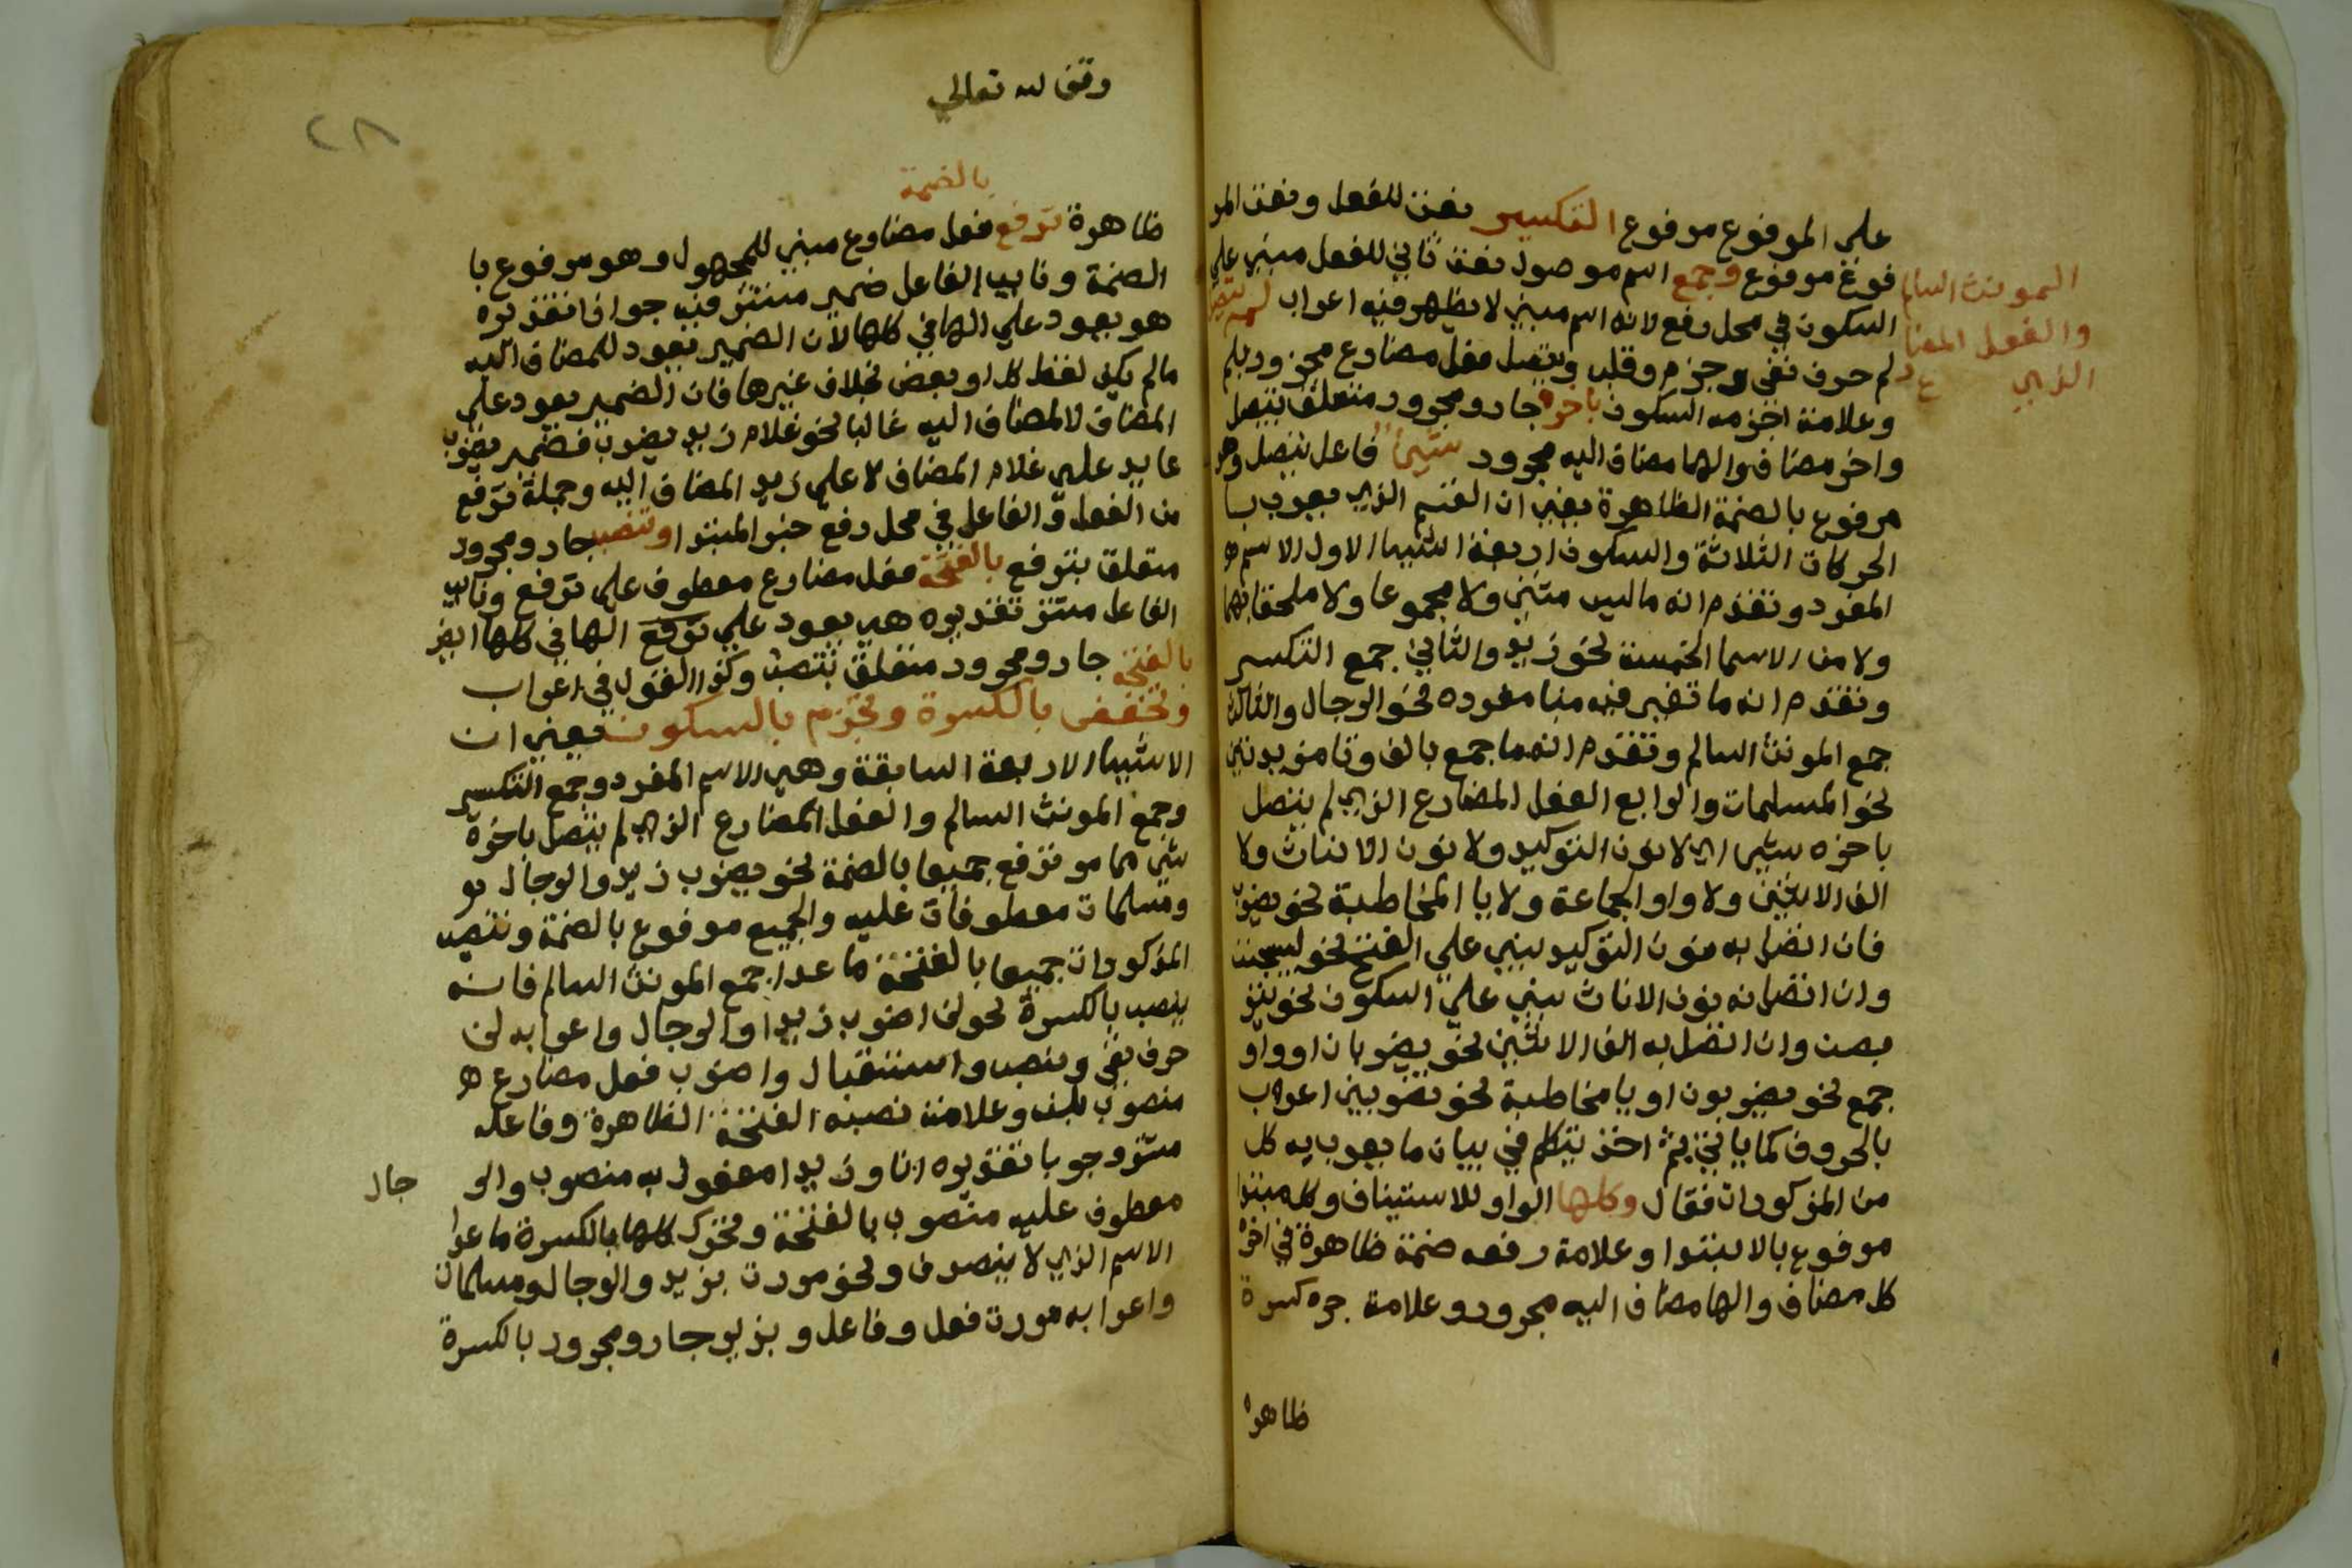 على المرفوع مرفوع التكسير نعت للفعل ونعت المر
فوع مرفوع وجمع اسم موصول نعت ثاني للفعل مبني على
المونث السالم
والفعل المضا
رع الذي
السكون في محل رفع لانه اسم مبني لا يظهر فيه اعراب لم يتصل
لم حرف نفي وجزم وقلب ويتصل فعل مضارع مجزوم بلم
وعلامة جزمه السكون باخره جار ومجرور متعلق بيتصل
واخر مضاف والها مضاف اليه مجرور شيئا فاعل يتصل وهو
مرفوع بالضمة الظاهرة يعني ان القسم الذي يعرب با
الحركات الثلاثة والسكون اربعة اشيا الاول الاسم
المفرد وتقدم انه ما ليس مثني ولا مجموعا ولا ملحقا بهما
ولا من الاسما الخمسة نحو زيد والثاني جمع التكسير
وتقدم انه ما تغير فيه بنا مفرده نحو الرجال والثالث
جمع المونث السالم وتقدم انه ما جمع بالف وتا مزيدتين
نحو المسلمات والرابع الفعل المضارع الذي لم يتصل
باخره شي اي لا نون التوكيد ولا نون الاناث ولا
الف الاثنين ولا واو الجماعة ولا يا المخاطبة نحو يضرب
فان اتصل به نون التوكيد بني على الفتح نحو ليسجنن
وان اتصل به نون الاناث بني على السكون نحو يتر
بصن وان اتصل به الف الاثنين نحو يضربان او واو
جمع نحو يضربون او يا مخاطبة نحو تضربين اعرب
بالحروف كما ياتي ثم اخذ يتكلم في بيان ما يعرب به كل
من المذكورات فقال وكلها الواو للاستيناف وكل مبتدا
مرفوع بالابتدا وعلامة رفعه ضمة ظاهرة في اخره
كل مضاف والها مضاف اليه مجرور وعلامة جره كسرة
ظاهرة
وقف لله تعالي
٢٨
بالضمة
ظاهرة ترفع فعل مضارع مبني للمجهول وهو مرفوع با
الضمة ونايب الفاعل ضمير مستتر فيه جوازا تقديره
هو يعود علي الها في كلها لان الضمير يعود للمضاف اليه
مالم يكن لفظ كل او بعض بخلاف غيرها فان الضمير يعود علي
المضاف لا لمضاف اليه غالبا نحو غلام زيد يضرب فضمير يضرب
عايد علي غلام المضاف لا علي زيد المضاف اليه وجملة ترفع
من الفعل والفاعل في محل رفع خبر المبتدا وتنصب جار ومجرور
متعلق بترفع بالفتحة فعل مضارع معطوف علي ترفع ونايب
الفاعل مستتر تقديره هي يعود علي ترفع الها في كلها ايض
بالفتحة جار ومجرور متعلق بتنصب وكذا القول في اعراب
وتخفض بالكسرة وتجزم بالسكون يعني ان
الاشيا الاربعة السابقة وهي الاسم المفرد وجمع التكسير
وجمع المونث السالم والفعل المضارع الذي لم يتصل باخره
شي مما مر ترفع جميعا بالضمة نحو يضرب زيد والرجال
ومسلمات معطوفات عليه والجميع مرفوع بالضمة وتنصب
المذكورات جميعا بالفتحة ما عدا جمع المونث السالم فانه
ينصب بالكسرة نحو لن اضرب زيدا والرجال واعرابه لن
حرف نفي ونصب واستقبال واضرب فعل مضارع
منصوب بلن وعلامة نصبه الفتحة الظاهرة وفاعله
مستتر وجوبا تقديره انا وزيدا مفعول به منصوب والر جال
معطوف عليه منصوب بالفتحة وتحرك كلها بالكسرة ما عدا
الاسم الذي لا ينصرف ونحو مررت بزيد والرجال ومسلمات
واعرابه مررت فعل وفاعل وبزيد جار ومجرور بالكسرة